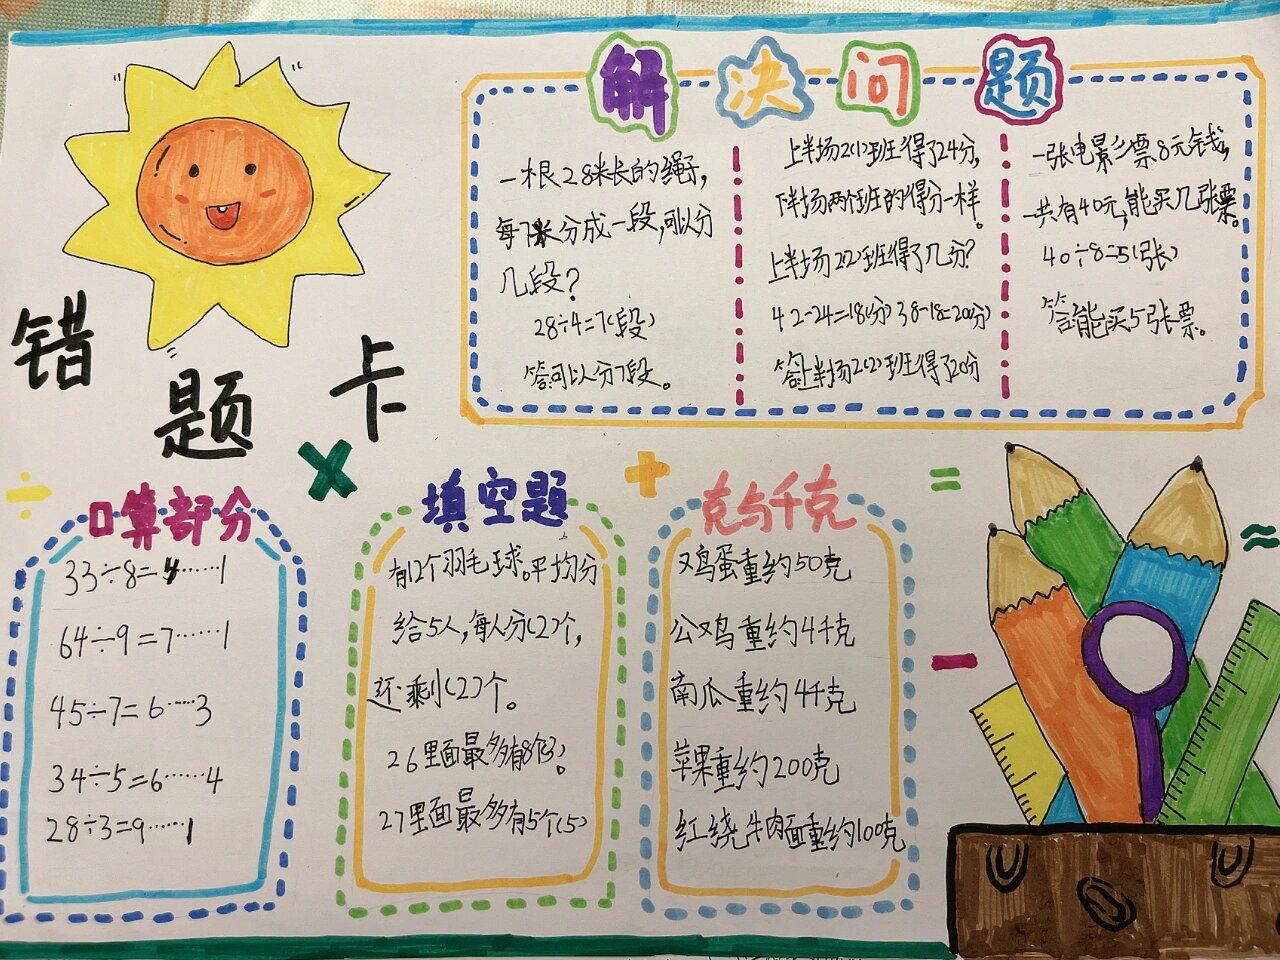 错题卡
解决问题
一根28米长的绳子,
每7米分成一段,可以分
几段?
28÷4=7(段)
答可以分7段。
上半场2(1)班得了24分,
下半场两个班的得分一样。
上半场2(2)班得了几分?
42-24=18(分) 38-18=20(分)
答上半场2(2)班得了20分
一张电影票8元钱,
一共有40元,能买几张票。
40÷8=5(张)
答能买5张票。
÷
×
+
=
-
≈
口算部分
33÷8=4……1
64÷9=7……1
45÷7=6……3
34÷5=6……4
28÷3=9……1
填空题
有12个羽毛球。平均分
给5人,每人分(2)个,
还剩(2)个。
26里面最多有8个3。
27里面最多有5个(5)
克与千克
鸡蛋重约50克
公鸡重约4千克
南瓜重约4千克
苹果重约200克
红烧牛肉面重约100克